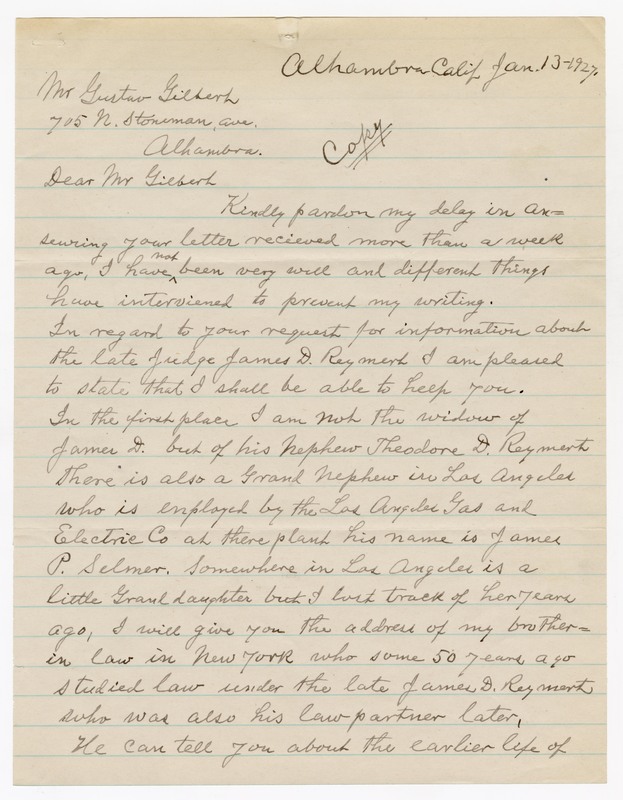 Alhambra Calif Jan. 13-1927.
Mr Gustav Gilbert
705 N. Stoneman, ave.
Alhambra.
Copy
Dear Mr Gilbert
Kindly pardon my delay in an=
swering your letter recieved more than a week
ago, I have not been very well and different things
have interviened to prevent my writing.
In regard to your request for information about
the late Judge James D. Reymert I am pleased
to state that I shall be able to help you.
In the first place I am not the widow of
James D. but of his Nephew Theodore D. Reymert
There is also a Grand Nephew in Los Angeles
who is employed by the Los Angeles Gas and
Electric Co at there plant his name is James
P. Selmer. Somewhere in Los Angeles is a
little Grand daughter but I lost track of her years
ago, I will give you the address of my brother=
in law in New York who some 50 years ago
studied law under the late James D. Reymert
who was also his law partner later,
He can tell you about the earlier life of